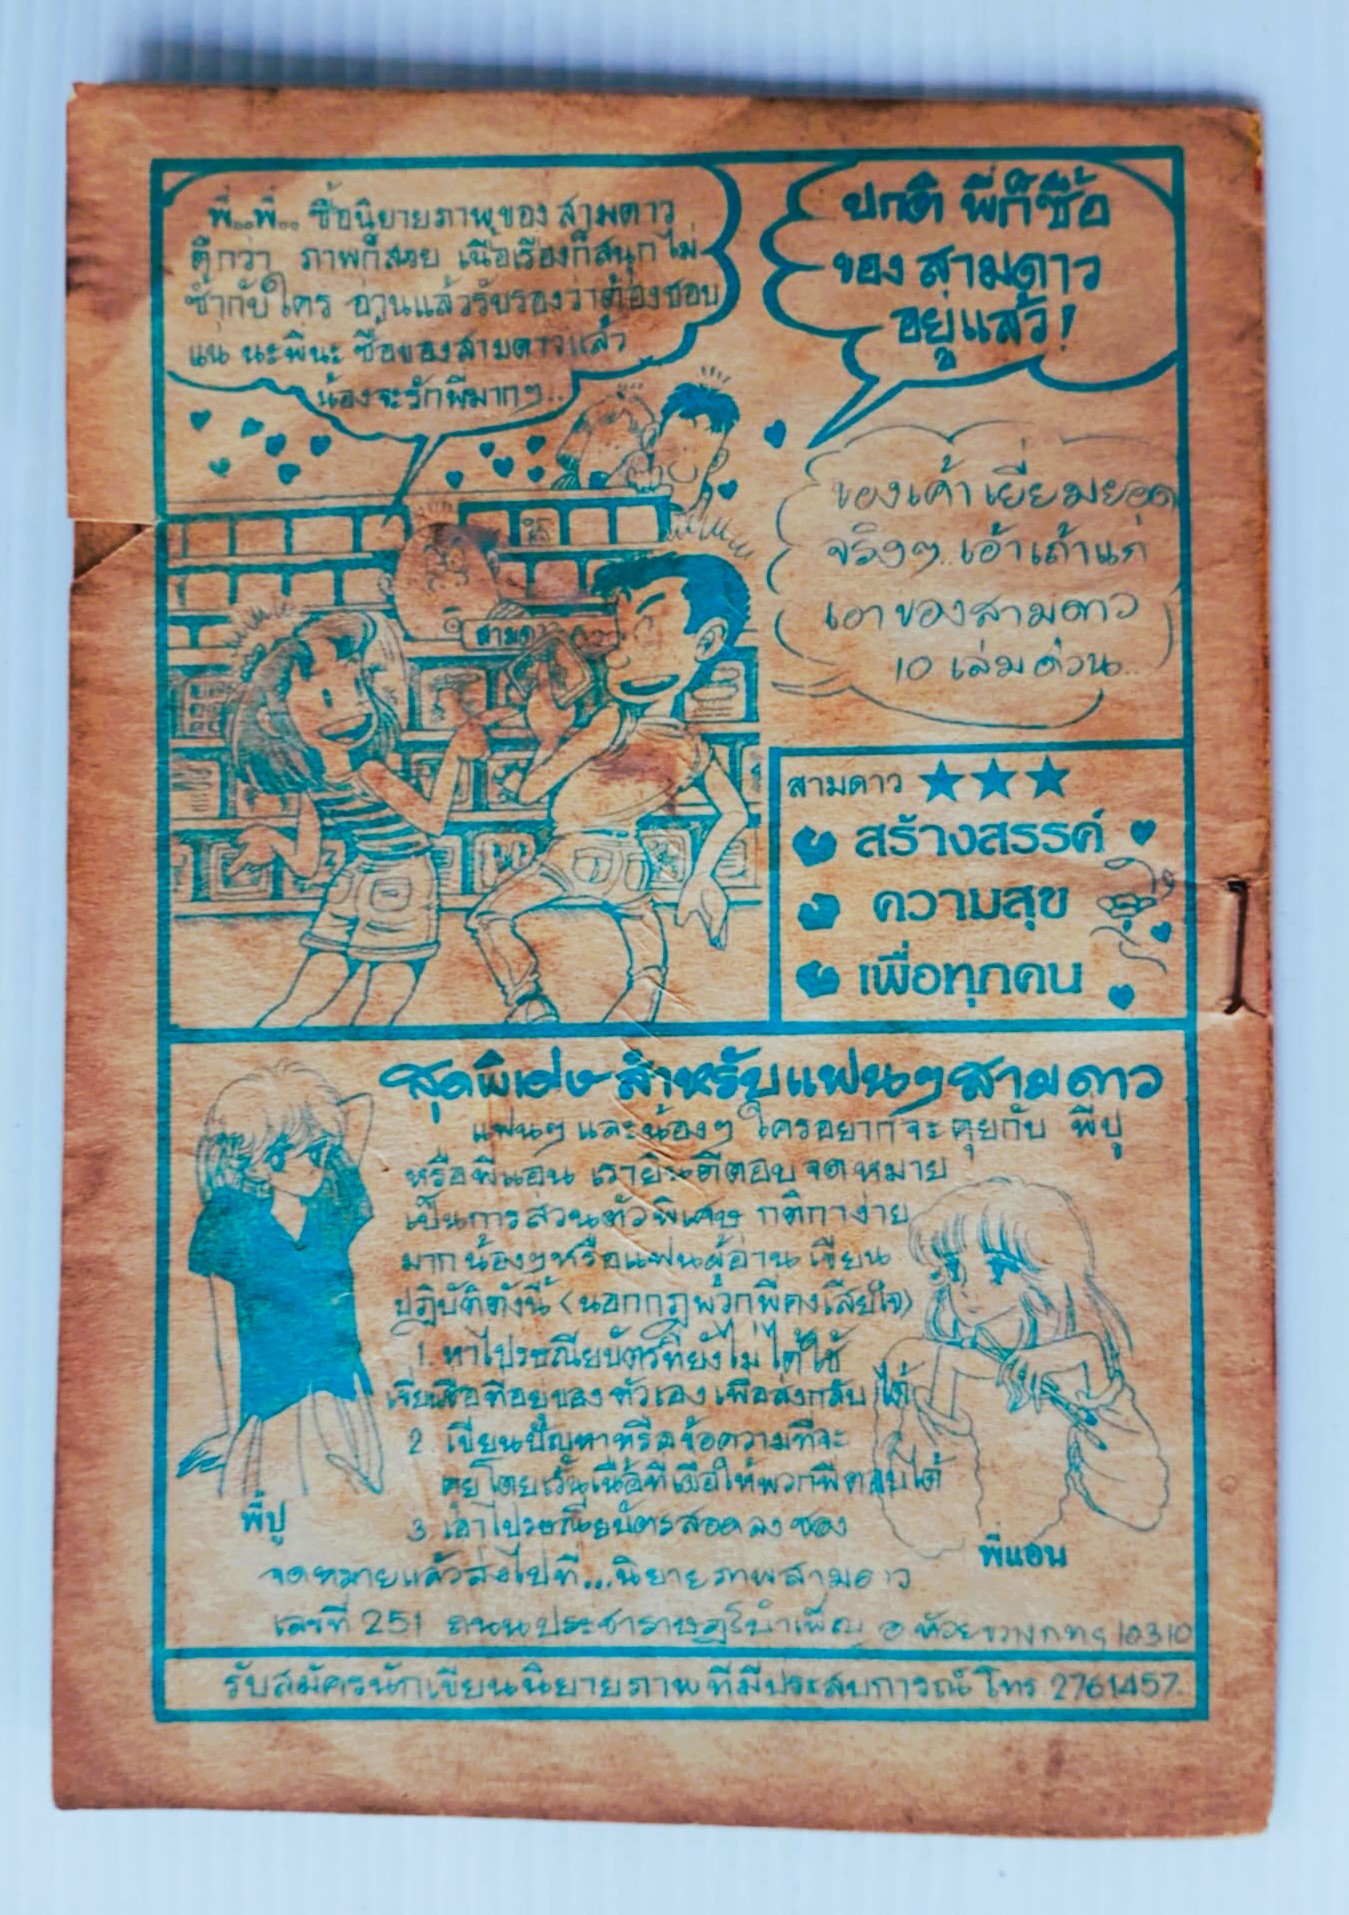 พี่..พี่.. ซื้อนิยายภาพของ สามดาว
ดีกว่า ภาพก็สวย เนื้อเรื่องก็สนุก ไม่
ซ้ำกับใคร อ่านแล้วรับรองว่าต้องชอบ
แน่ นะพี่นะ ซื้อของสามดาวแล้ว
น้องจะรักพี่มากๆ...
ปกติ พี่ก็ซื้อ
ของ สามดาว
อยู่แล้ว!
ของเค้า เยี่ยมยอด
จริงๆ.. เอ้าเถ้าแก่
เอาของสามดาว
10 เล่มด่วน..
สามดาว ★★★
สร้างสรรค์
ความสุข
เพื่อทุกคน
สุดพิเศษ สำหรับแฟนๆ สามดาว
แฟนๆ และน้องๆ ใครอยากจะคุยกับ พี่ปู
หรือพี่แอน เรายินดีตอบจดหมาย
เป็นการส่วนตัวพิเศษ กติกาง่าย
มาก น้องๆหรือแฟนผู้อ่าน เขียน
ปฏิบัติดังนี้ (นอกกฎพวกพี่คงเสียใจ)
1. หาไปรษณียบัตรที่ยังไม่ได้ใช้
เขียนชื่อที่อยู่ของ ตัวเอง เพื่อส่งกลับ ได้
2. เขียนปัญหาหรือข้อความที่จะ
คุยโดยเว้นเนื้อที่เผื่อให้พวกพี่ตอบได้
3. เอาไปรษณียบัตรสอดลง ซอง
จดหมายแล้วส่งไปที่...นิยายภาพสามดาว
เลขที่ 251 ถนนประชาราษฎร์บำเพ็ญ อ ห้วยขวาง กทม 10310
พี่ปู
พี่แอน
รับสมัครนักเขียนนิยายภาพ ที่มีประสบการณ์ โทร. 2761457.